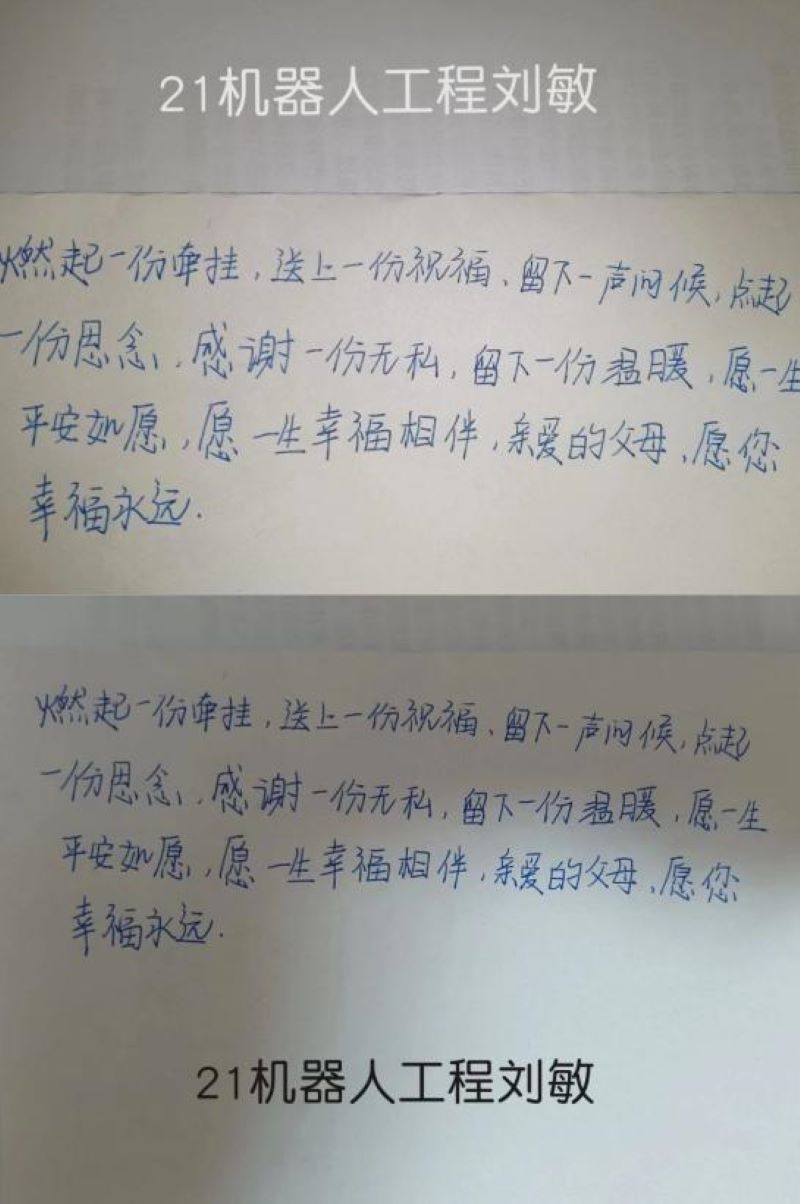 21机器人工程刘敏
燃起一份牵挂，送上一份祝福、留下一声问候，点起
一份思念，感谢一份无私，留下一份温暖，愿一生
平安如愿，愿一生幸福相伴，亲爱的父母、愿您
幸福永远.
燃起一份牵挂，送上一份祝福、留下一声问候，点起
一份思念，感谢一份无私，留下一份温暖，愿一生
平安如愿，愿一生幸福相伴，亲爱的父母、愿您
幸福永远.
21机器人工程刘敏